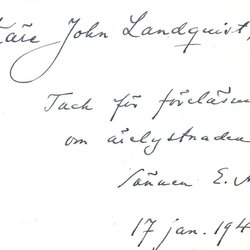 Käre John Landquist,
Tack för föreläsn
om ärelystnaden
vännen E. A
17 jan. 194